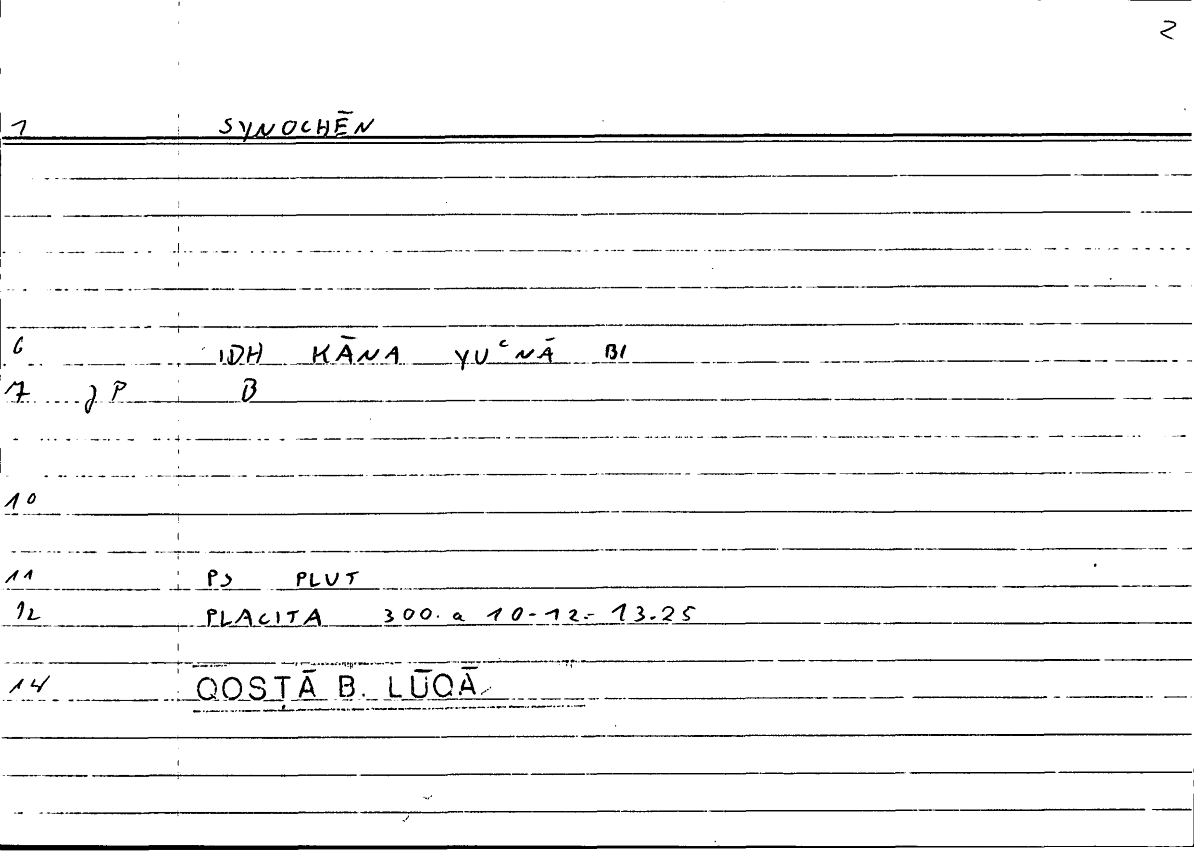 2
1 SYNOCHĒN
6 IDH KĀNA YUʿNĀ BI
7 P B
10
11 PS PLUT
12 PLACITA 300.a 10-12.-13.25
14 QOSṬĀ B. LŪQĀ